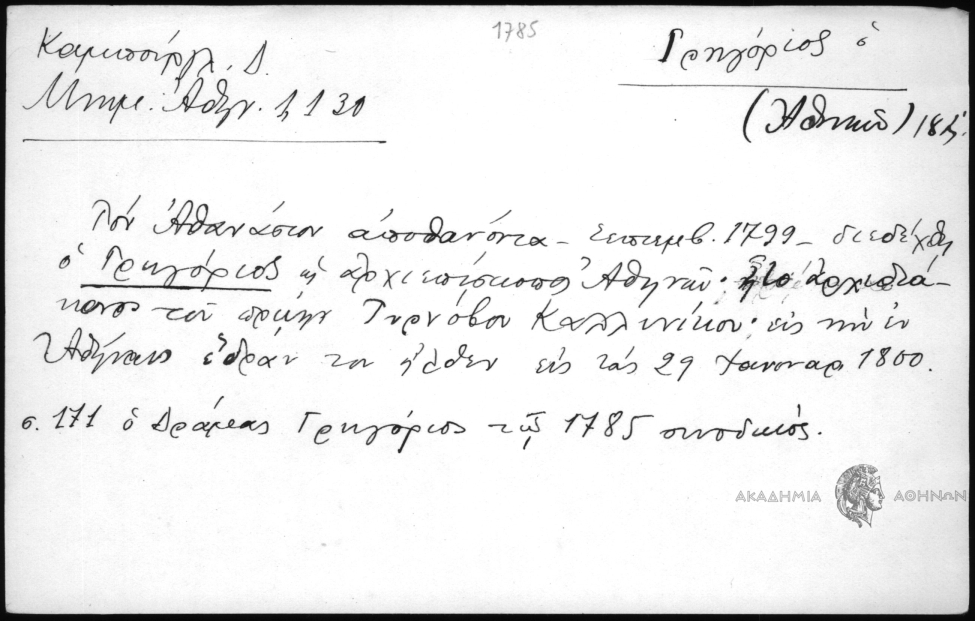 1785
Καμπούργλ. Δ.
Μνημ. Ἀθην. 130
Γρηγόριος ὁ
(Ἀθηνῶν)
Τόν Ἀθανάσιον ἀποθανόντα - Σεπτεμβ. 1799 - διεδέχθη
ὁ Γρηγόριος ὡς ἀρχιεπίσκοπος Ἀθηνῶν· ἦτο ἀρχιδιά-
κονος τοῦ πρώην Τυρνόβου Καλλινίκου· εἰς τήν ἐν
Ἀθήναις ἕδραν του ἦλθεν εἰς τάς 29 Ἰανουαρ 1800.
σ. 171 ὁ Δράμας Γρηγόριος τῷ 1785 συνοδικός.
ΑΚΑΔΗΜΙΑ ΑΘΗΝΩΝ